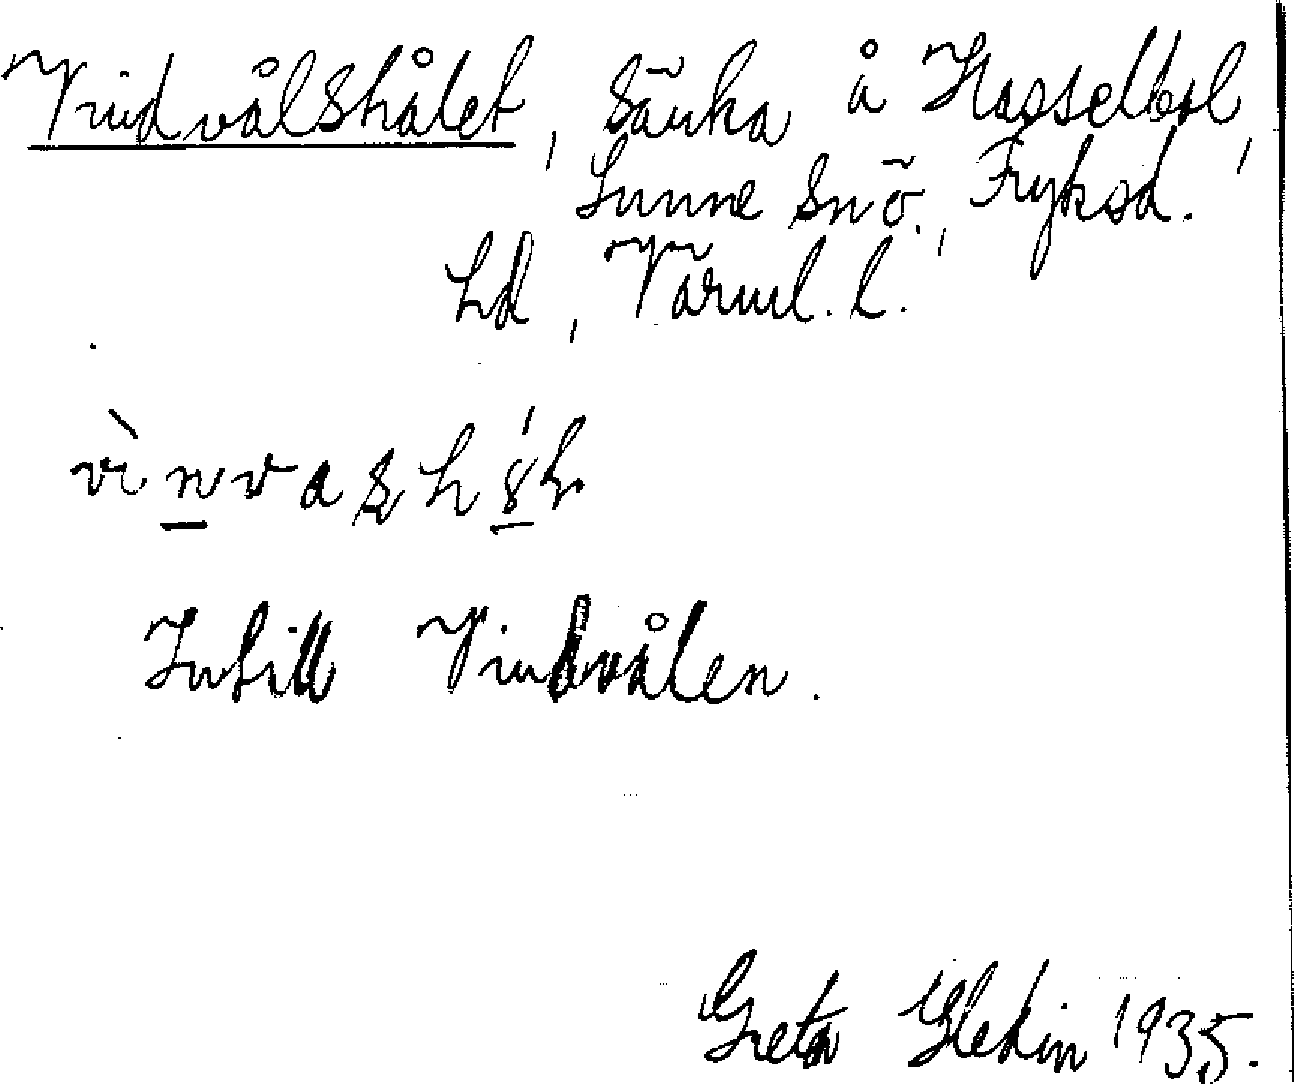 Vindvålshålet, sänka å Hasselbol,
Sunne snö., Fryksd.
hd, Värml. l.
Intill Vindvålen.
Greta Hedin 1935.